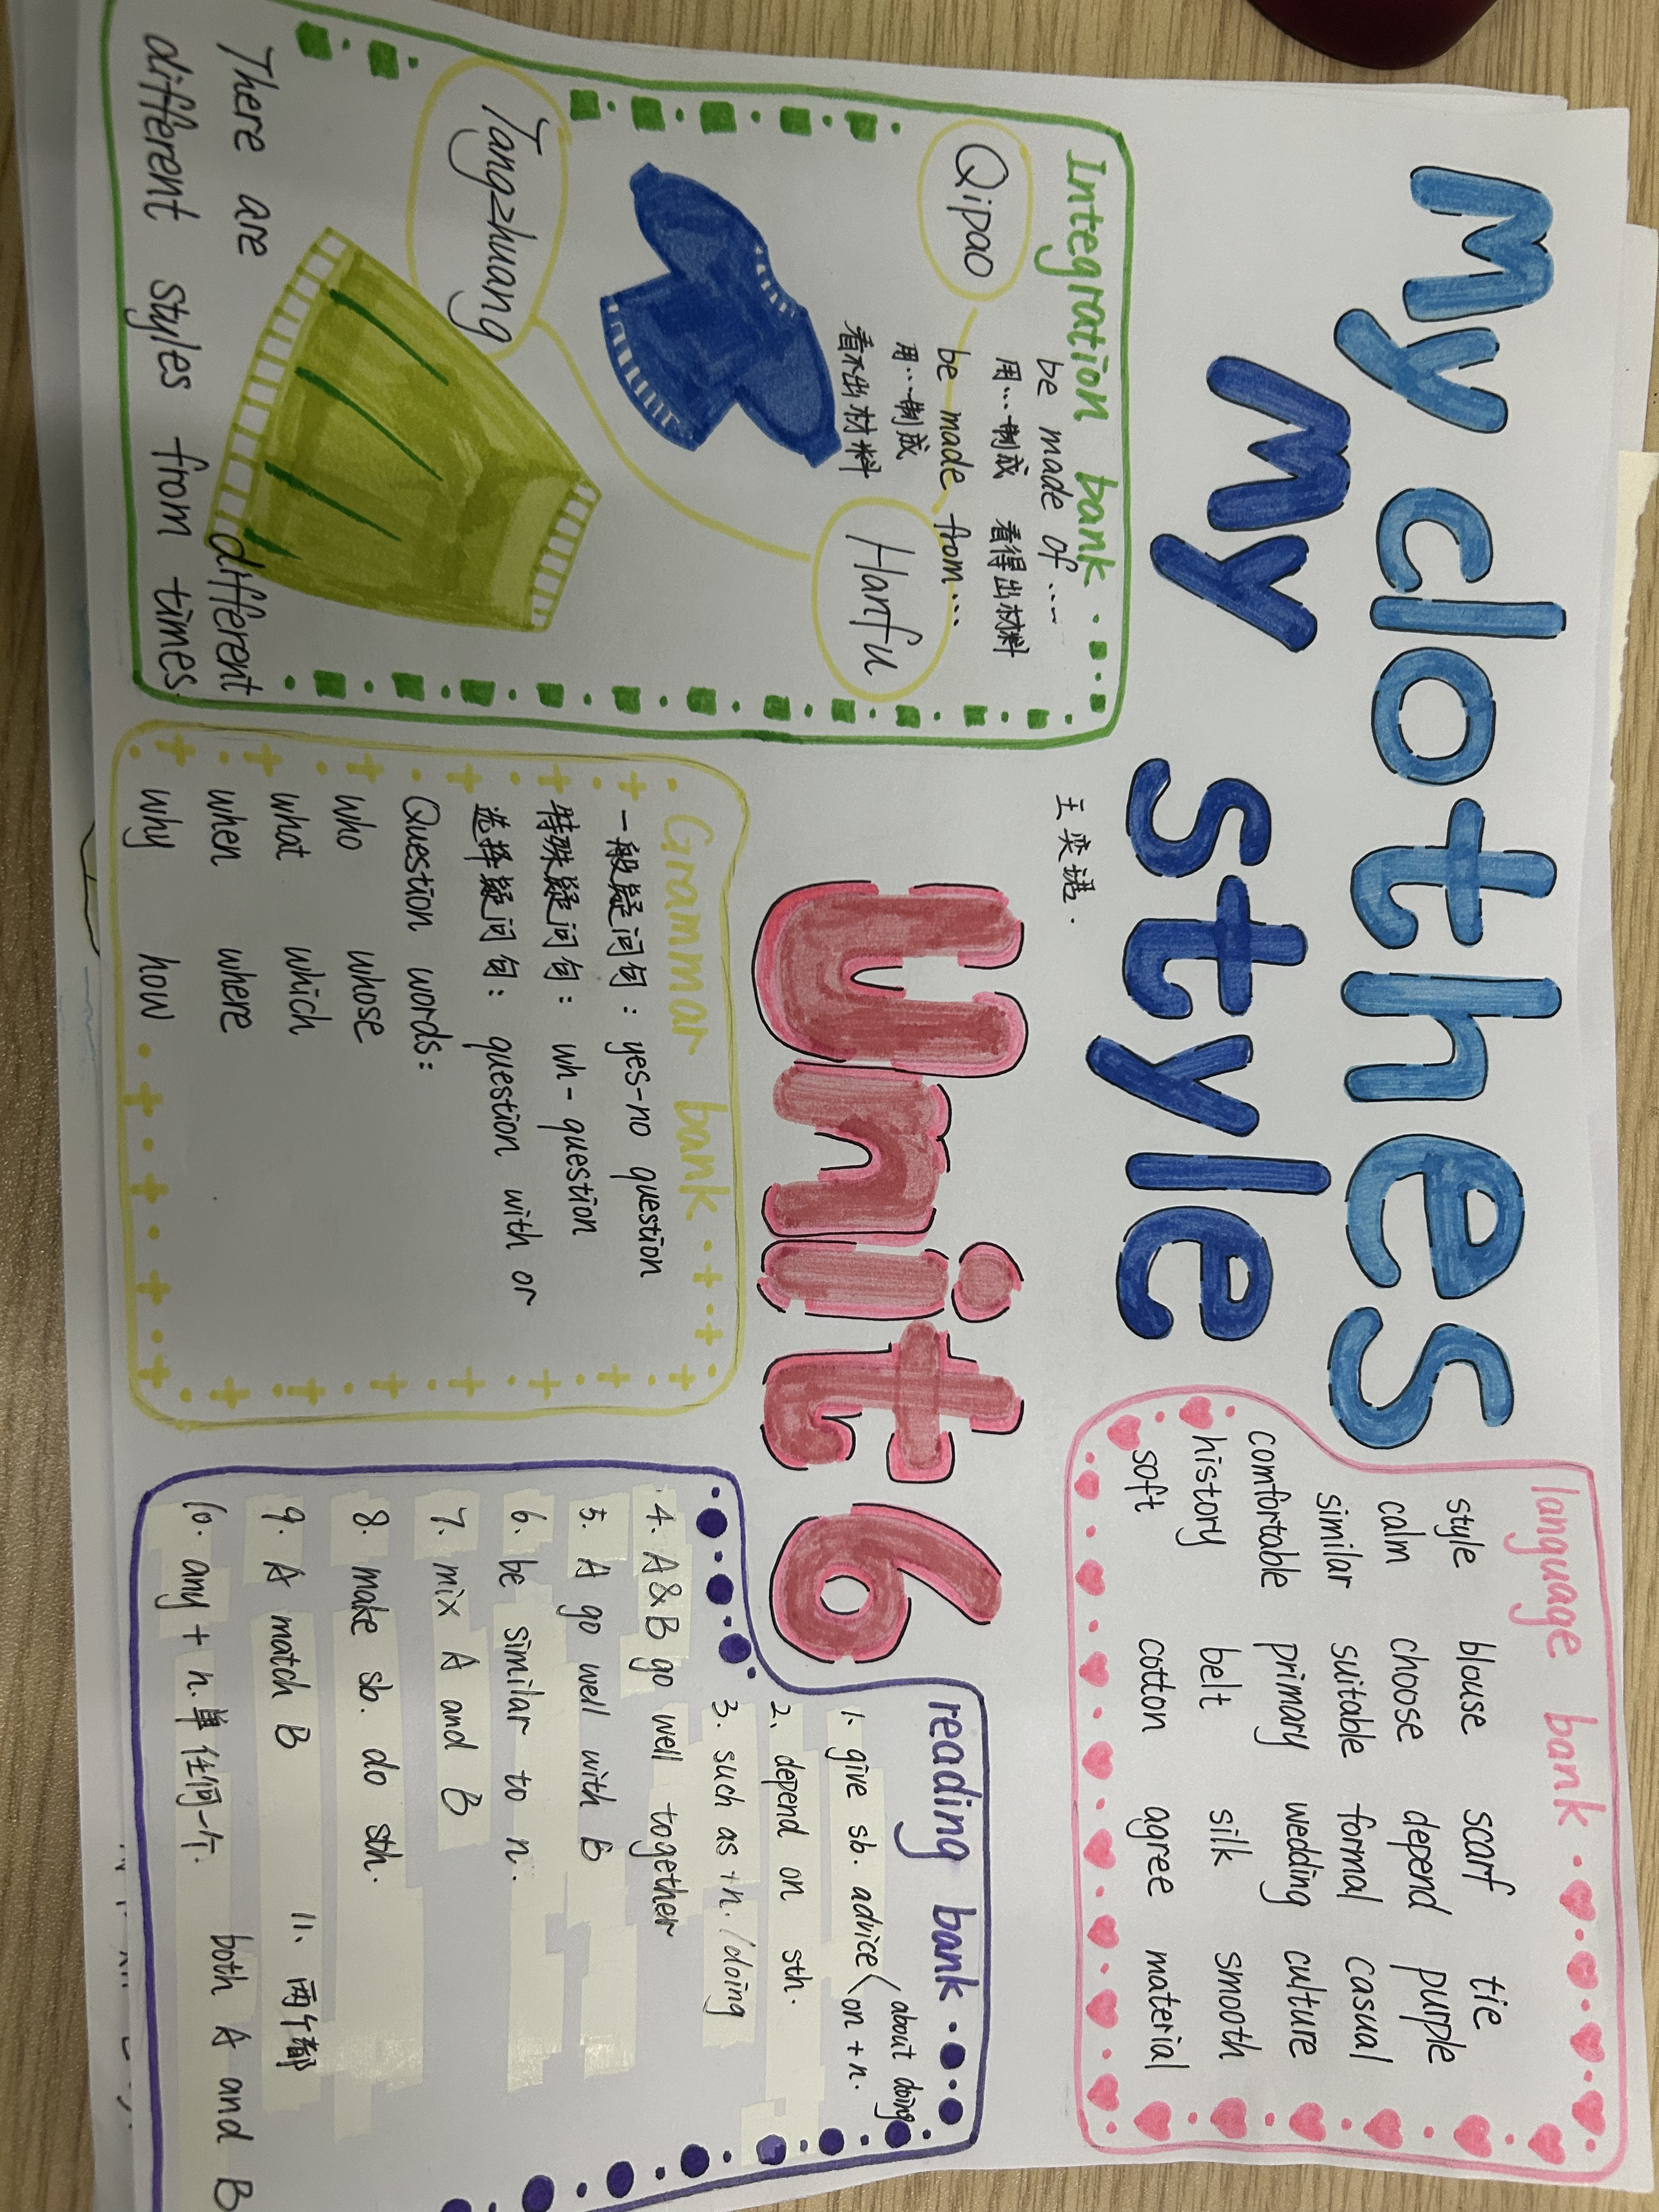 My clothes
My style
王奕珺.
Unit 6
Integration bank
be made of ....
用...制成 看得出材料
be made from....
用...制成
看不出材料
Qipao
Hanfu
Tangzhuang
There are different
different styles from times.
Grammar bank
一般疑问句: yes-no question
特殊疑问句: wh- question
选择疑问句: question with or
Question words:
who whose
what which
when where
why how
language bank
style blouse scarf tie
calm choose depend purple
similar suitable formal casual
comfortable primary wedding culture
history belt silk smooth
soft cotton agree material
reading bank
1. give sb. advice about doing
on + n.
2. depend on sth.
3. such as + n. / doing
4. A&B go well together
5. A go well with B
6. be similar to n.
7. mix A and B
8. make sb. do sth.
9. A match B
10. any + n.单 任何一个.
11. 两个都
both A and B